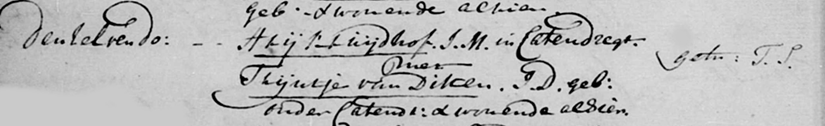 geb: & wonende alhier.
denzelven do: -- Arij Kuijdhof. J. M. in Catendregt. getr: T. P.
met
Trijntje van Dijken. J. D. geb:
onder Catendr: & wonende aldier.